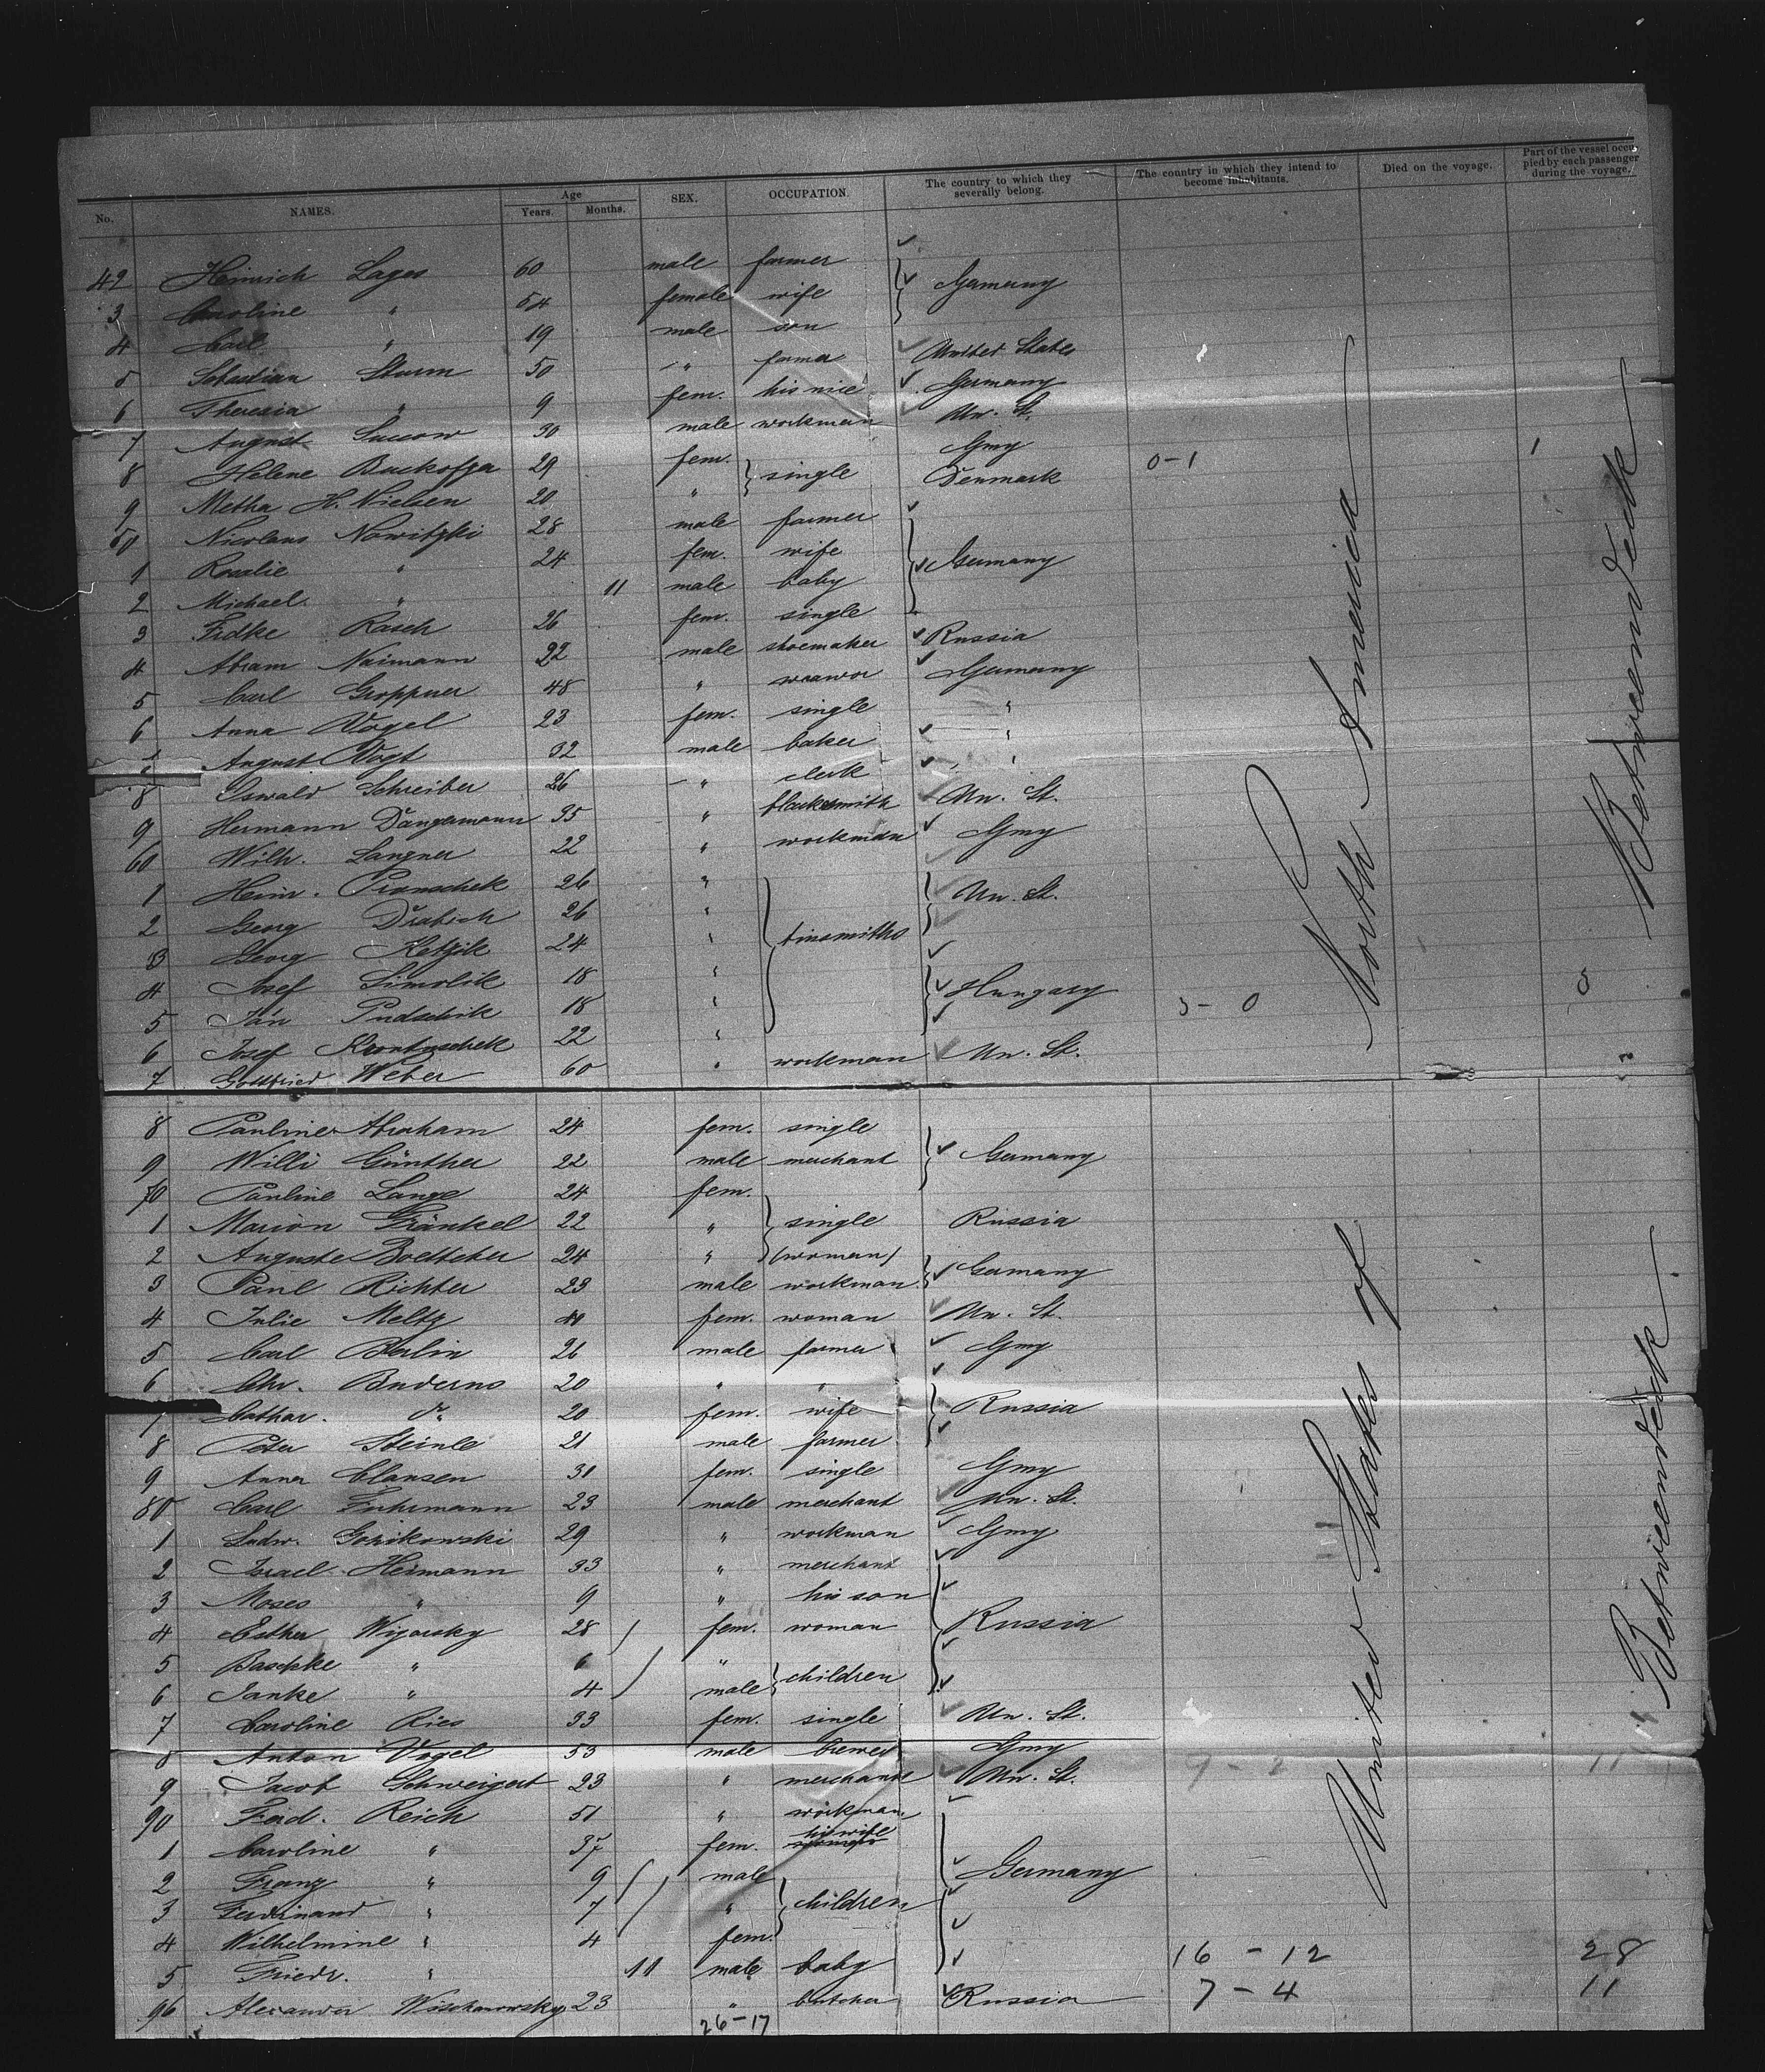 No. NAMES. Age Years. Months. SEX. OCCUPATION. The country to which they severally belong. The country in which they intend to become inhabitants. Died on the voyage. Part of the vessel occupied by each passenger during the voyage.
42 Heinrich Lages 60 male farmer
3 Caroline " 54 female wife Germany
4 Carl " 19 male son
5 Sebastian Sturm 50 " farmer United States
6 Theresia " 9 fem. his nice Germany
7 August Succow 30 male workman Un. St.
8 Helene 29 fem. Gmy 0-1 1
9 Metha H. Nielsen 20 " single Denmark
50 Nicolaus Nowitzki 28 male farmer
1 Rosalie " 24 fem. wife Germany
2 Michael " 11 male baby
3 Rasch 26 fem. single
4 Abram Naimann 22 male shoemaker Russia
5 Carl Groppner 48 " Germany
6 Anna Vogel 23 fem. single "
August Vogt 32 male baker "
8 Oswald Schreiber 26 " clerk "
9 Hermann Dangermann 35 " blacksmith Un. St.
60 Wilh. Langner 22 " workman Gmy
1 Heinr. Pranschek 26 "
2 Georg Drabich 26 " Un. St.
3 Georg 24 " tinsmiths
4 Josef Simolik 18 "
5 Jan Pudschik 18 " Hungary 5-0 5
6 Josef 22 "
7 Gottfried Weber 60 " workman Un. St.
8 Pauline Abraham 24 fem. single
9 Willi Günther 22 male merchant Germany
70 Pauline Lange 24 fem.
1 Marion Fränkel 22 " single Russia
2 Auguste Boettcher 24 " (woman)
3 Paul Richter 23 male workman Germany
4 Julie Meltz fem. woman Un. St.
5 Carl Berlin 26 male farmer Gmy
6 Chr. Buderus 20 " "
7 Cathar. do. 20 fem. wife Russia
8 Peter Steinle 21 male farmer
9 Anna Clausen 31 fem. single Gmy
80 Carl Fuhrmann 23 male merchant Un. St.
1 Ludw. Gorikowski 29 " workman Gmy
2 Israel Heimann 33 " merchant
3 Moses " 9 " his son
4 Esther Wigorsky 28 fem. woman Russia
5 Baschke " 6 "
6 Janke " 4 male children
7 Caroline Ries 33 fem. single Un. St.
8 Anton Vogel 53 male brewer Gmy 9-2 11
9 Jacob Schweigert 23 " merchant Un. St.
90 Ferd. Reich 51 " workman
1 Caroline " 37 fem. his wife
2 Franz " 9 male Germany
3 Ferdinand " 7 " children
4 Wilhelmine " 4 fem.
5 Friedr. " 11 male baby 16 - 12 28
96 Alexander Wischanowsky 23 " butcher Russia 7-4 11
26-17
United States of North America
Betweendeck
Betweendeck